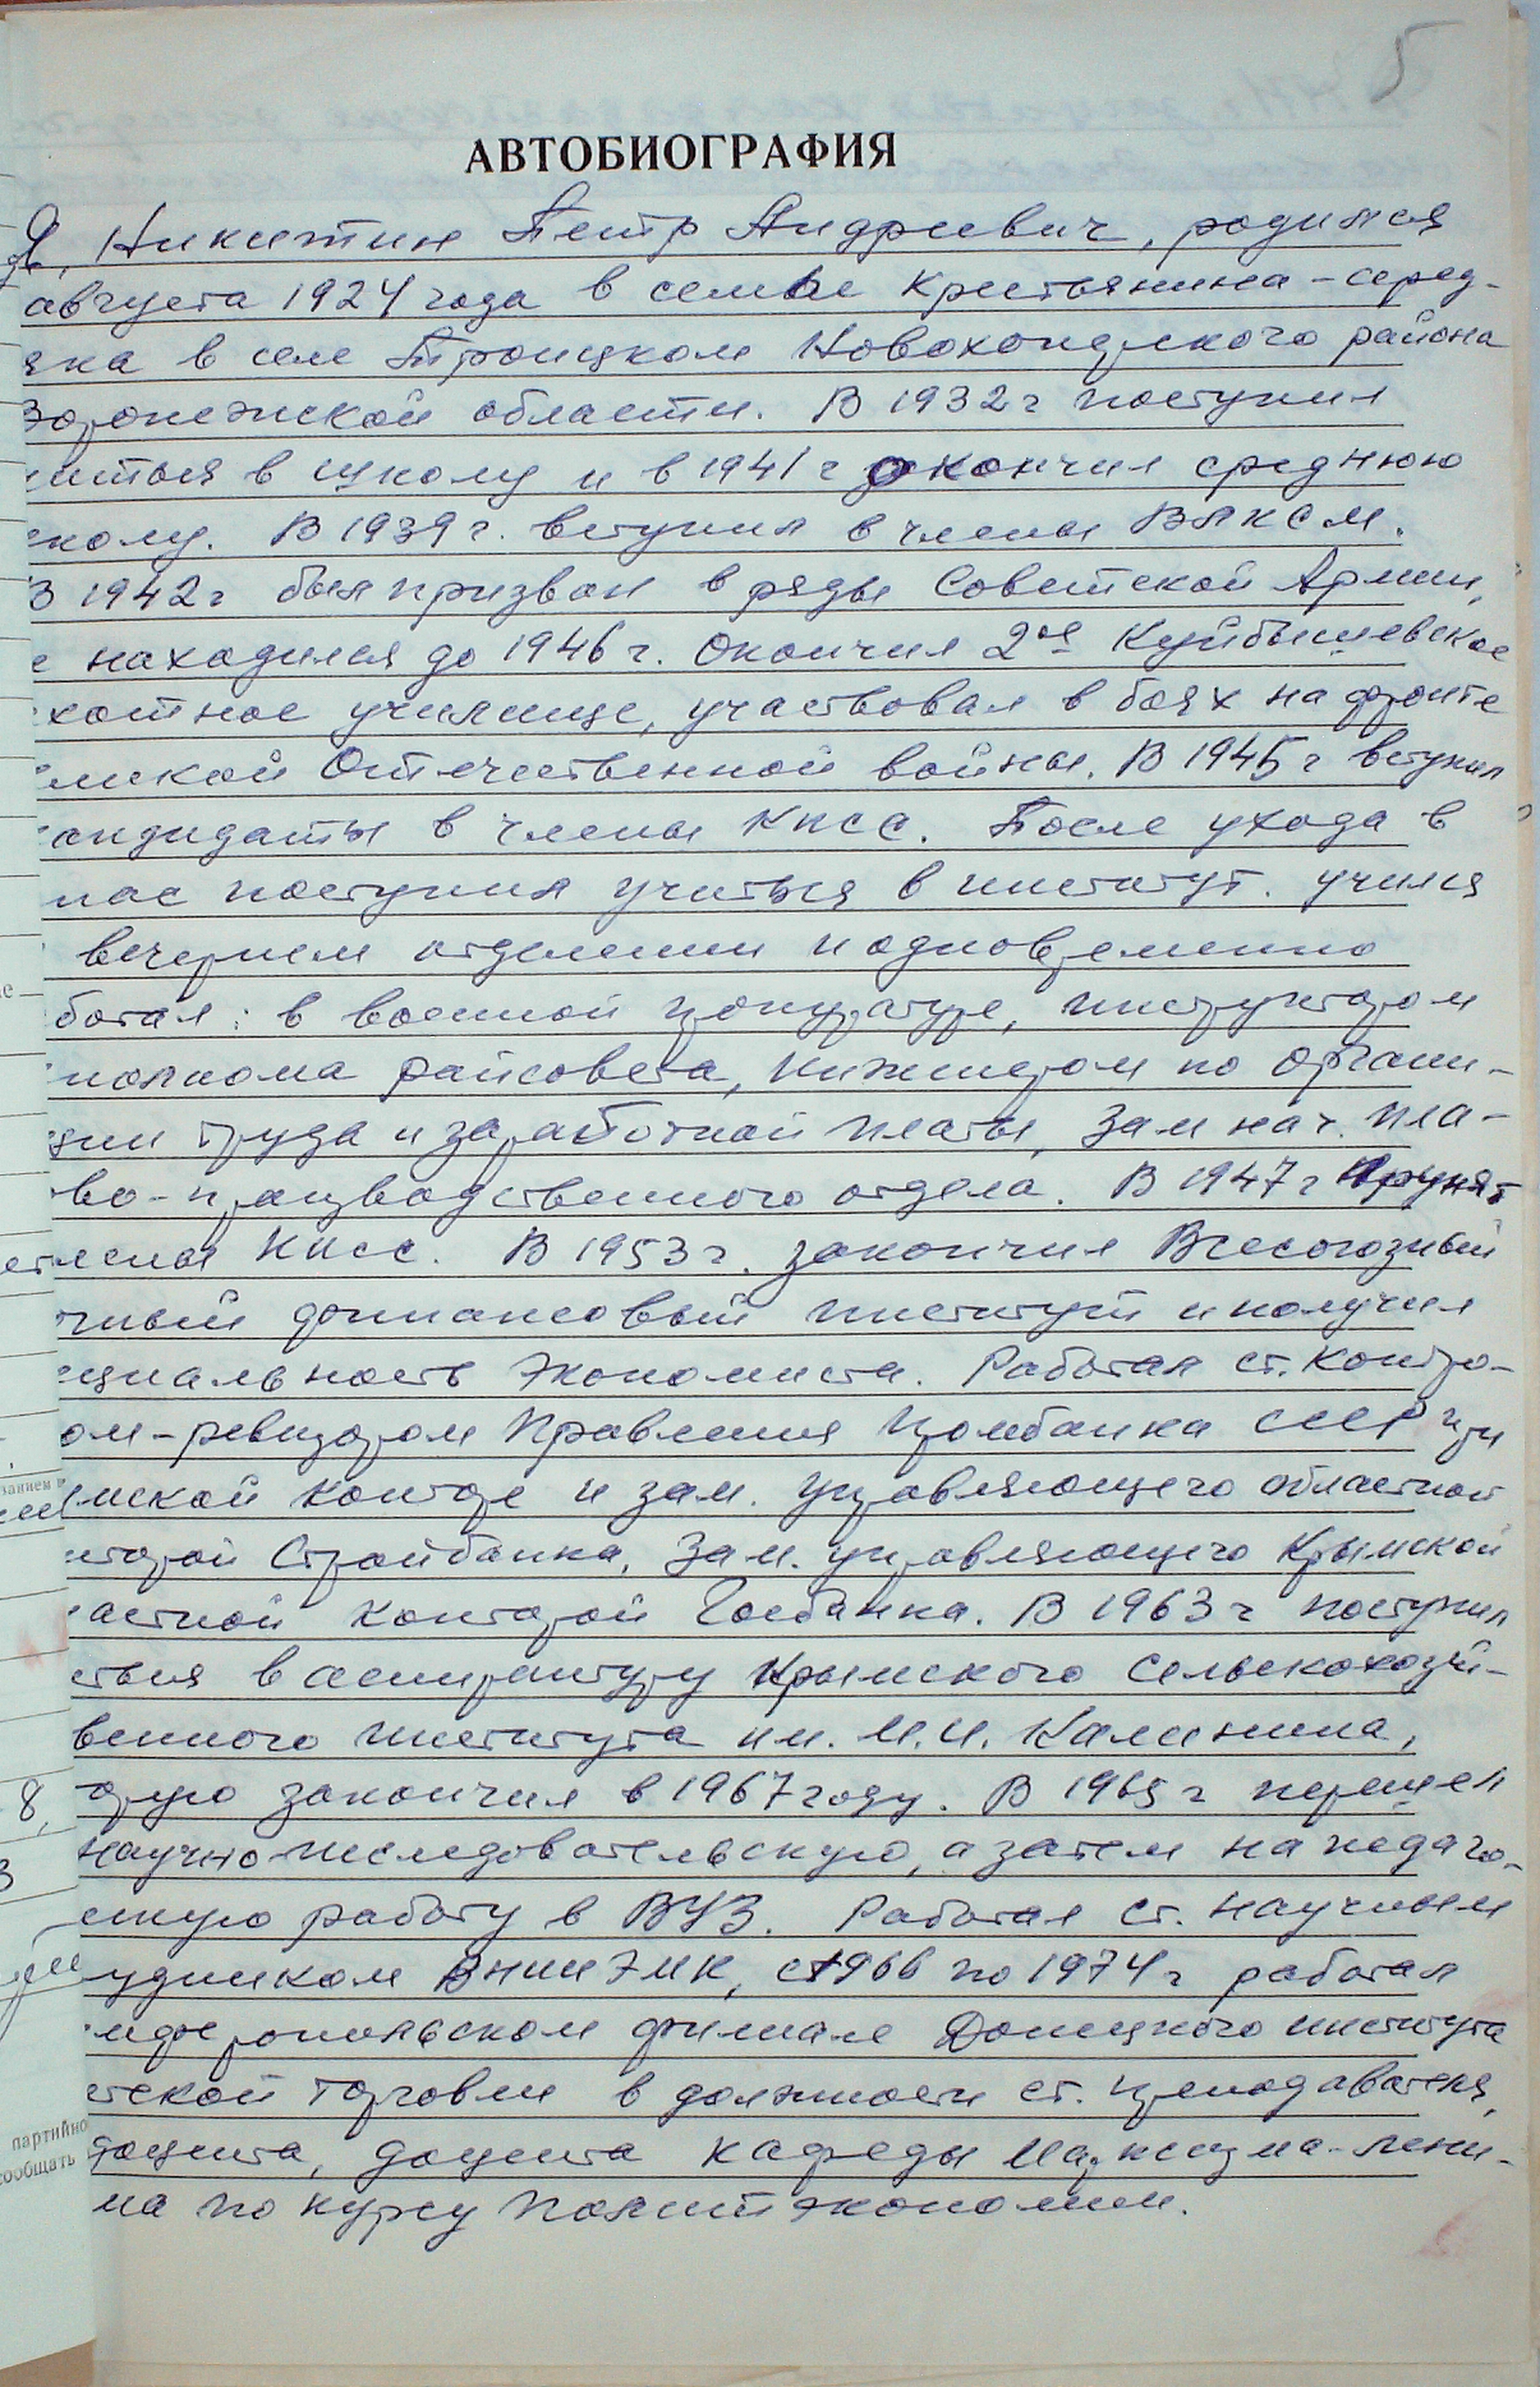 5
АВТОБИОГРАФИЯ
Я, Никитин Петр Андреевич, родился
августа 1924 года в семье крестьянина-серед-
яка в селе Троицком Новохоперского района
Воронежской области. В 1932 г поступил
читься в школу и в 1941 г окончил среднюю
школу. В 1939 г. вступил в члены ВЛКСМ.
В 1942 г был призван в ряды Советской Армии,
е находился до 1946 г. Окончил 2ое Куйбышевское
хотное училище, участвовал в боях на фронте
еликой Отечественной войны. В 1945 г вступил
кандидаты в члены КПСС. После ухода в
пас поступил учиться в институт. учился
вечернем отделении и одновременно
ботал: в военной прокуратуре, инструктором
полкома райсовета, инженером по органи-
ции труда и заработной платы, зам нач. пла-
во-производственного отдела. В 1947 г принят
члены КПСС. В 1953 г. закончил Всесоюзный
чный финансовый институт и получил
ециальность экономиста. Работал ст. контро-
ом-ревизором Правления Промбанка СССР при
мской конторе и зам. управляющего областной
нторой Стройбанка, зам. управляющего Крымской
астной конторой Госбанка. В 1963 г поступил
ться в аспирантуру Крымского сельскохозяй-
венного института им. М.И. Калинина,
орую закончил в 1967 году. В 1965 г перешел
научно исследовательскую, а затем на педаго-
скую работу в ВУЗ. Работал ст. научным
удником ВНИИЭМК, с 1966 по 1974 г работал
мферопольском филиале Донецкого института
етской торговли в должности ст. преподавателя,
доцента, доцента кафедры Марксизма-лени-
ма по курсу политэкономии.
занием
8,
партийно
сообщать